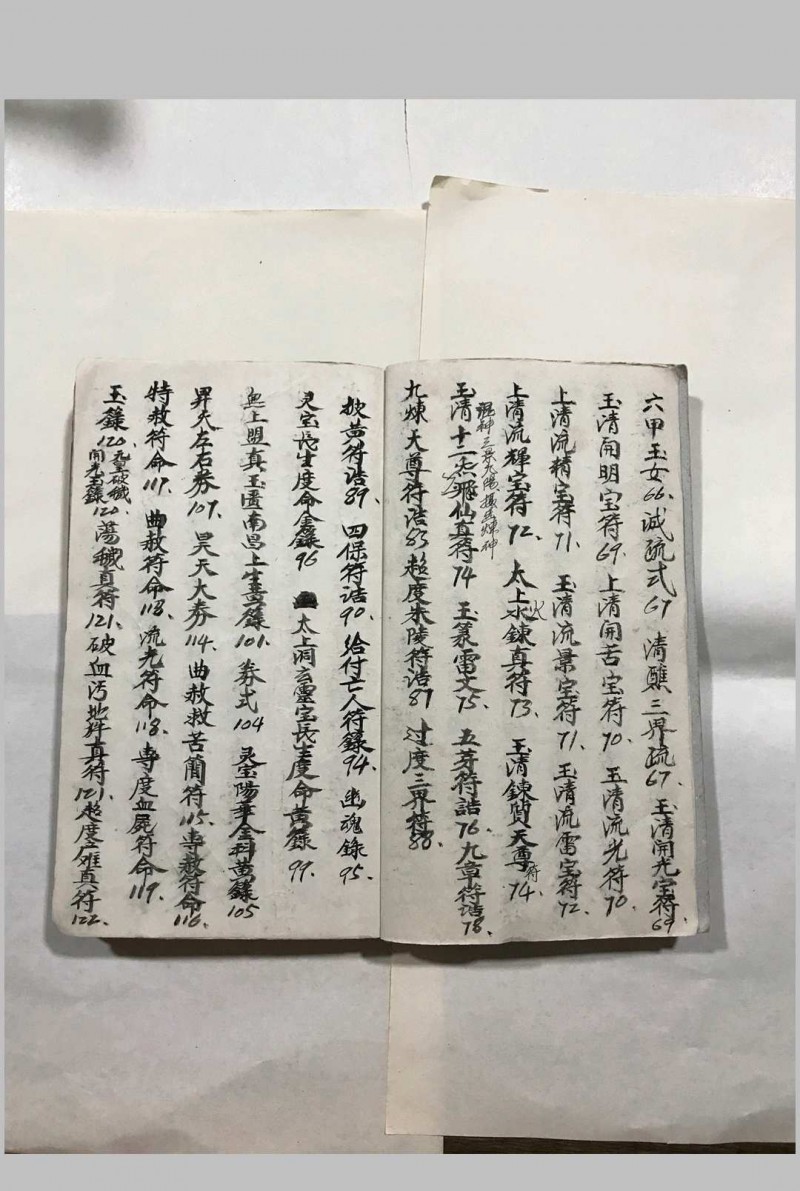 六甲玉女66、减疏式67 清醮三界疏67、玉清開光宝符69
玉清開明宝符69、上清開苦宝符70、玉清流光符70、
上清流精宝符71、玉清流景宝符71、玉清流雷宝符72、
上清流輝宝符72、太上水火鍊真符73、玉清鍊質天尊符74、
混神三景九陽攝炁煉神
玉清十二炁飛仙真符74 玉篆雷文75、五芽符誥76、九章符誥78、
九煉天尊符誥83 超度朱陵符誥87 过度三界符88、
披黄符诰89、四保符诰90、给付亡人符籙94、幽魂籙95、
灵宝長生度命金籙96 太上洞玄靈宝長生度命黄籙99、
無上盟真玉匱南昌上生籙101、券式104 灵宝陽華全科黄籙105
昇天左右券107、昊天大券114、曲赦救苦簡符115、専赦符命116、
特赦符命117、曲赦符命118、流光符命118、専度血屍符命119、
玉籙120、破穢開光玉籙120、蕩穢真符121、破血污地猝真符121、超度产难真符122、